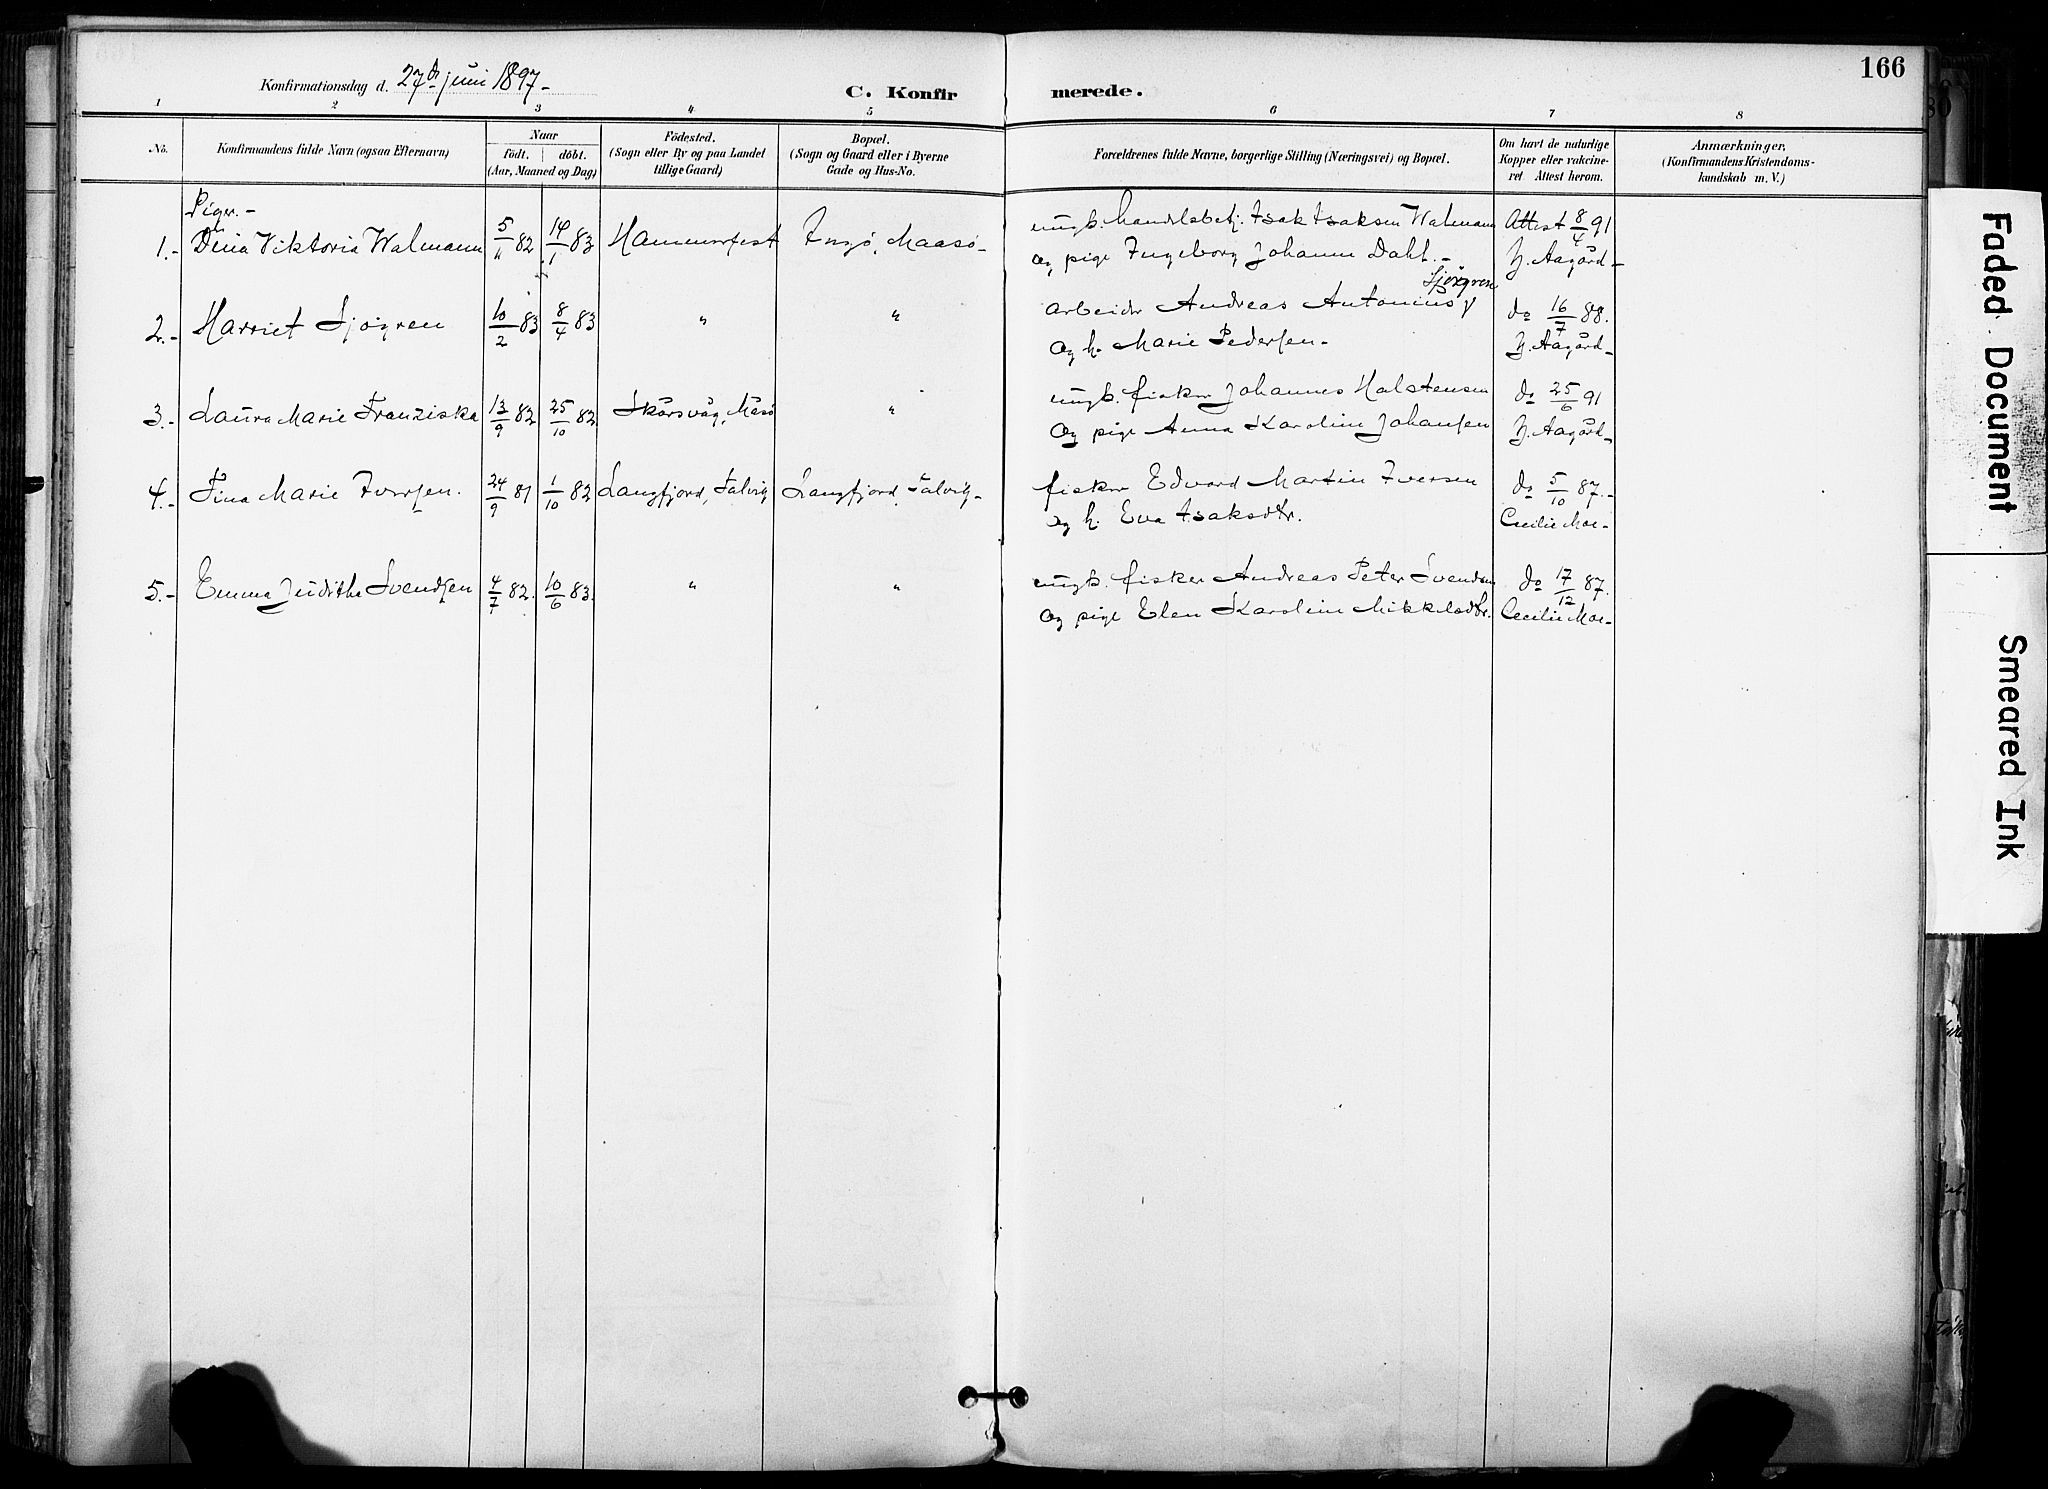 166
Konfirmationsdag d. 27de juni 1897.-
C. Konfirmerede.
1 2 3 4 5 6 7 8
No.
Konfirmandens fulde Navn (ogsaa Efternavn)
Naar
födt. döbt.
(Aar, Maaned og Dag)
Födested.
(Sogn eller By og paa Landet
tillige Gaard)
Bopæl.
(Sogn og Gaard eller i Byerne
Gade og Hus-No.
Forældrenes fulde Navne, borgerlige Stilling (Næringsvei) og Bopæl.
Om havt de naturlige
Kopper eller vakcine-
ret Attest herom.
Anmærkninger,
(Konfirmandens Kristendoms-
kundskab m. V.)
Piger.-
1.- Dina Viktoria Walmann 5/11 82 14/1 83 Hammerfest Ingö, Maasö- ungk. handelsbetj. Isak Isaksen Walmann Attest 8/4 91
og pige Ingeborg Johanne Dahl.- J. Aagård-
Sjögren
2.- Harriet Sjögren 10/2 83 8/4 83 " " arbeider Andreas Antonius do 16/7 88.
og h. Marie Pedersen- J. Aagård-
3.- Laura Marie Franziska 13/9 82 25/10 82 Skårsvåg, Måsö " ungk. fisker Johannes Halstensen do 25/6 91
og pige Anna Karoline Johansen J. Aagård-
4.- Tina Marie Iversen. 24/9 81 1/10 82 Langfjord, Talvig Langfjord, Talvig- fisker Edvard Martin Iversen do 5/10 87.-
og h. Eva Isaksdtr. Cecilie Moe-
5.- Emma Judithe Svendsen 4/7 82. 10/6 83. " " ungk. fisker Andreas Peter Svendsen do 17/12 87.
og pige Elen Karoline Mikkelsdtr. Cecilie Moe-
Faded Document
Smeared Ink